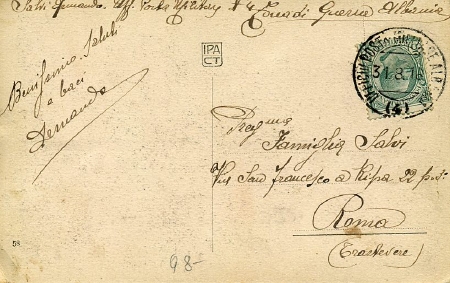 Salvi Armando. Uff. Posta Militare N 4 Zona di Guerra Albania
Benissimo. Saluti
e baci
Armando
IPA
CT
31.8.16
(4)
Preg.ma
Famiglia Salvi
Via San Francesco a Ripa 22 p.
Roma
(Trastevere)
58
98-